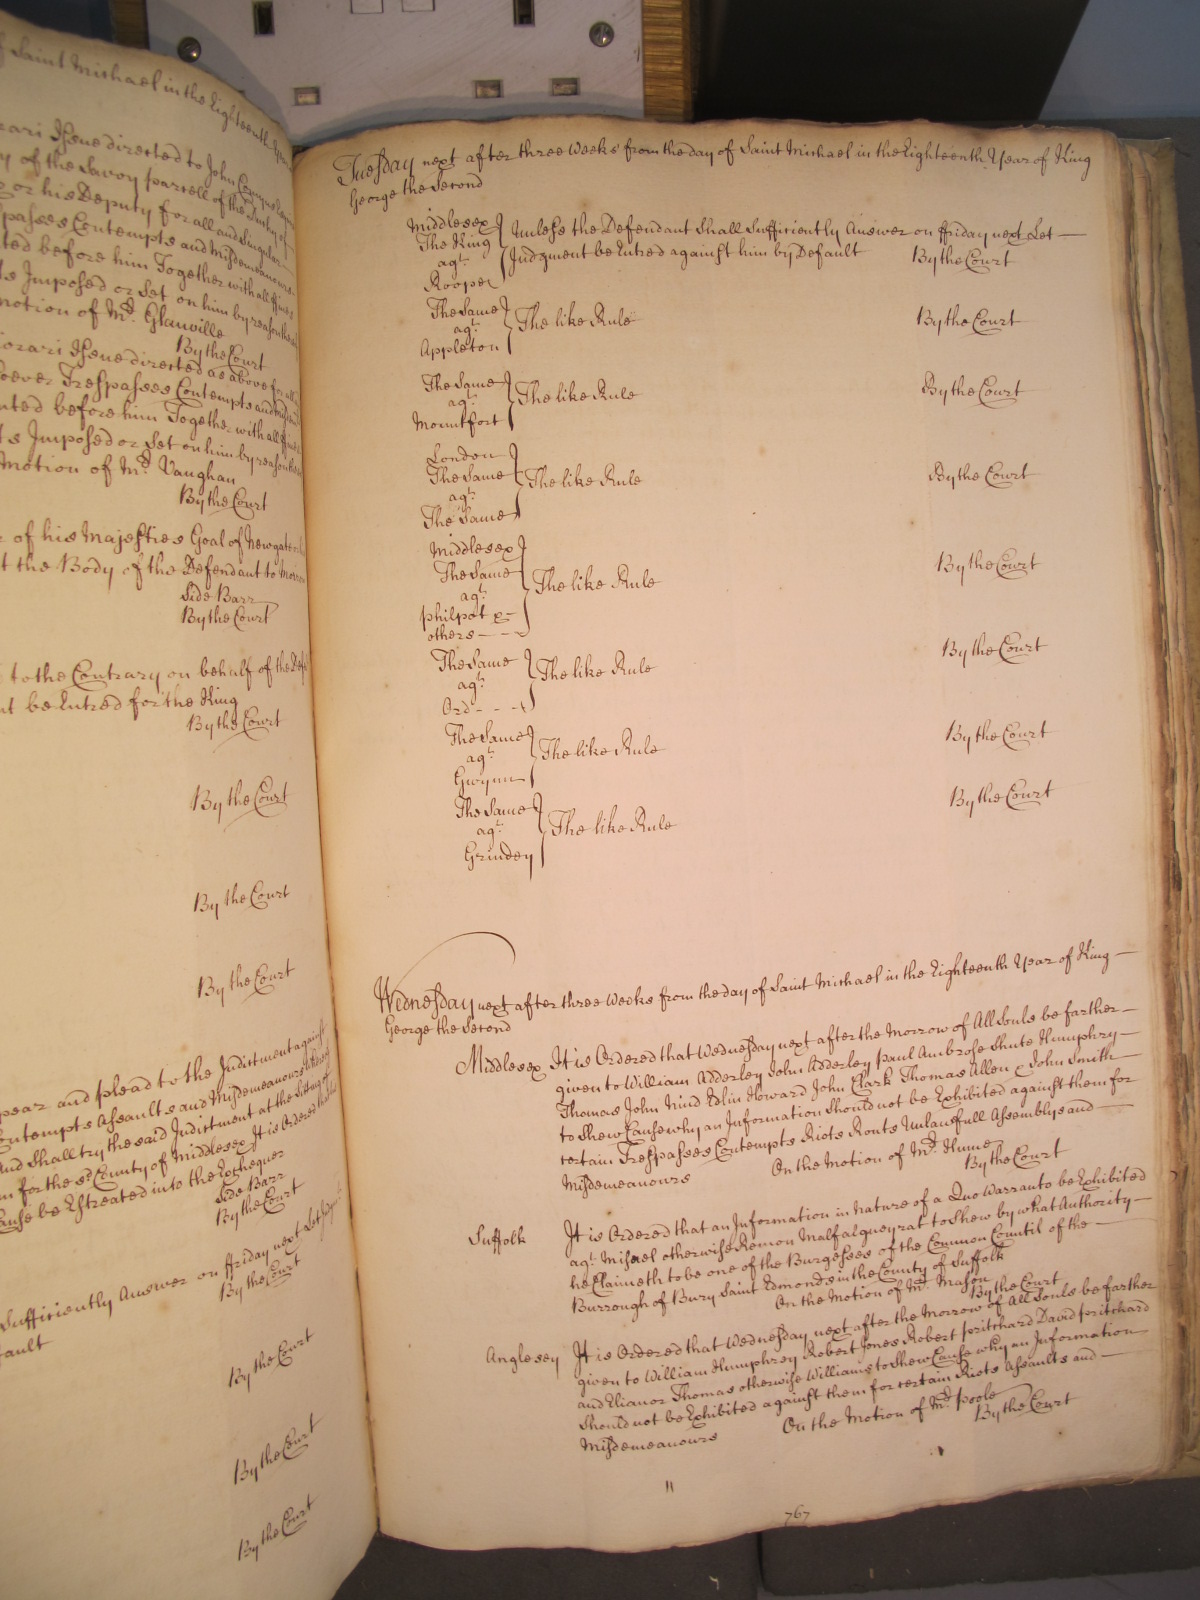 f Saint Michael in the Eighteenth Year
rari Issue directed to John
y of the Savoy parcell of the Dutchy of
g or his Deputy for all and Singular
passes Contempts and Misdemeanours
ted before him Together with all ffines
ts Imposed or Set on him by reason
motion of Mr. Glanville
By the Court
iorari Issue directed as above for all
soever Trespasses Contempts and
nted before him Together with all
ts Imposed or Set on him by reason
Motion of Mr. Vaughan
By the Court
r of his Majesties Goal of Newgate
t the Body of the Defendant to
Side Barr
By the Court
to the Contrary on behalf of the
nt be Entred for the King
By the Court
By the Court
By the Court
By the Court
pear and plead to the Indictment against
ontempts Assaults and Misdemeanours
And Shall try the said Indictment at the Sitting
m for the sd. County of Middlesex It is Ordered
Cause be Estreated into the Exchequer
Side Barr
By the Court
Sufficiently Answer on ffriday next Let
ault
By the Court
By the Court
By the Court
By the Court
Tuesday next after three Weeks from the day of Saint Michael in the Eighteenth Year of King
George the Second
Middlesex
The King
agt.
Rooper
Unless the Defendant Shall Sufficiently Answer on ffriday next Let
Judgment be Entred against him by Default By the Court
The Same
agt.
Appleton
The like Rule By the Court
The Same
agt.
Mountfort
The like Rule By the Court
London
The Same
agt.
The Same
The like Rule By the Court
Middlesex
The Same
agt.
philpot &
others
The like Rule By the Court
The Same
agt.
Ord
The like Rule By the Court
The Same
agt.
Gwynn
The like Rule By the Court
The Same
agt.
Grindey
The like Rule By the Court
Wednesday next after three Weeks from the day of Saint Michael in the Eighteenth Year of King
George the Second
Middlesex It is Ordered that Wednesday next after the Morrow of All Souls be farther
given to William Adderley John Adderley paul Ambrose Shute Humphry
Thomas John Nind Edlin Howard John Clark Thomas Allen & John Smith
to Shew Cause why an Information Should not be Exhibited against them for
certain Trespasses Contempts Riots Routs Unlawfull Assemblys and
Misdemeanours On the Motion of Mr. Hume
By the Court
Suffolk It is Ordered that an Information in nature of a Quo Warranto be Exhibited
agt. Misael otherwise Remon Malfalgueyrat to Shew by what Authority
he Claimeth to be one of the Burgesses of the Common Council of the
Burrough of Bury Saint Edmonds in the County of Suffolk
On the Motion of Mr. Mason
By the Court
Anglesey It is Ordered that Wednesday next after the Morrow of All Souls be farther
given to William Humphrey Robert Jones Robert pritchard David pritchard
and Elianor Thomas otherwise Williams to Shew Cause why an Information
Should not be Exhibited against them for certain Riots Assaults and
Misdemeanours On the Motion of Mr. poole
By the Court
767